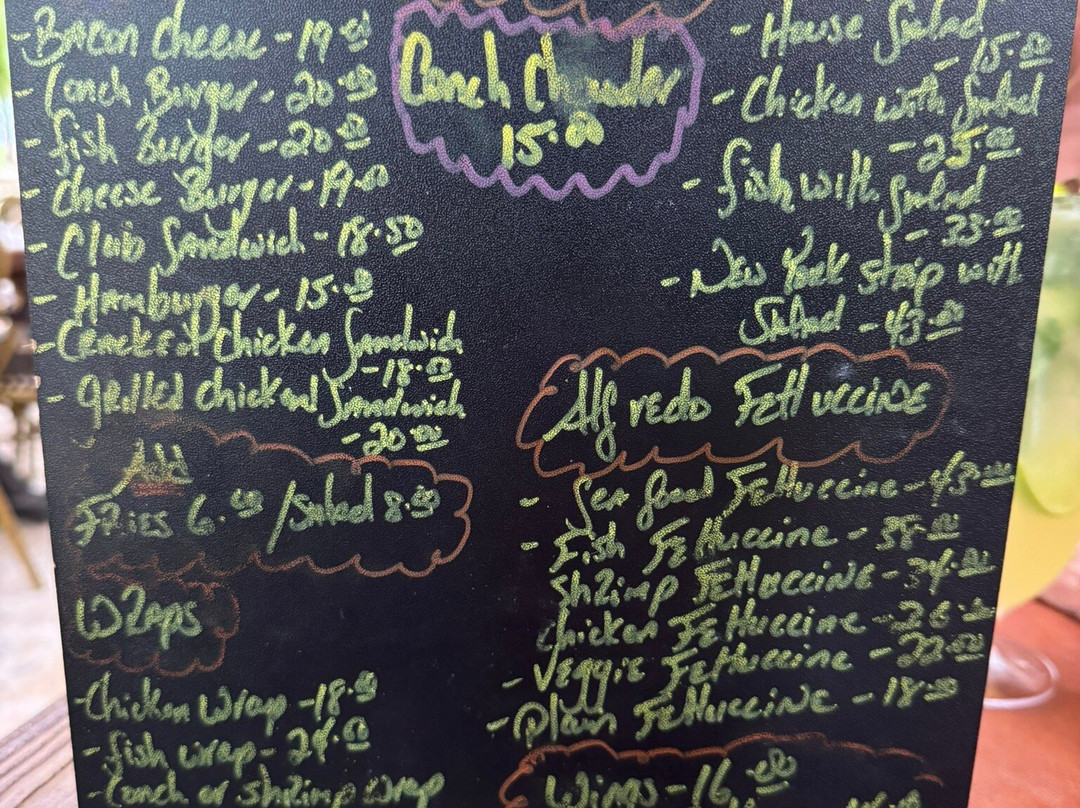 - Bacon cheese - 19.00
- Conch Burger - 20.00
- fish Burger - 20.00
- cheese Burger - 19.00
- Club Sandwich - 18.50
- Hamburger - 15.00
- Cracked chicken Sandwich
- 18.00
- grilled chicken Sandwich
- 20.00
Add
Fries 6.00 / Salad 8.50
Wraps
- Chicken wrap - 18.00
- fish wrap - 24.00
- Conch or shrimp wrap
Conch Chowder
15.00
- House Salad
- 15.00
- Chicken with Salad
- 25.00
- fish with Salad
- 33.00
- New York strip with
Salad - 43.00
Alfredo Fettuccine
- Sea food Fettuccine - 43.00
- Fish Fettuccine - 38.00
Shrimp Fettuccine - 34.00
Chicken Fettuccine - 26.00
- Veggie Fettuccine - 22.00
- Plain Fettuccine - 18.00
Wings - 16.00